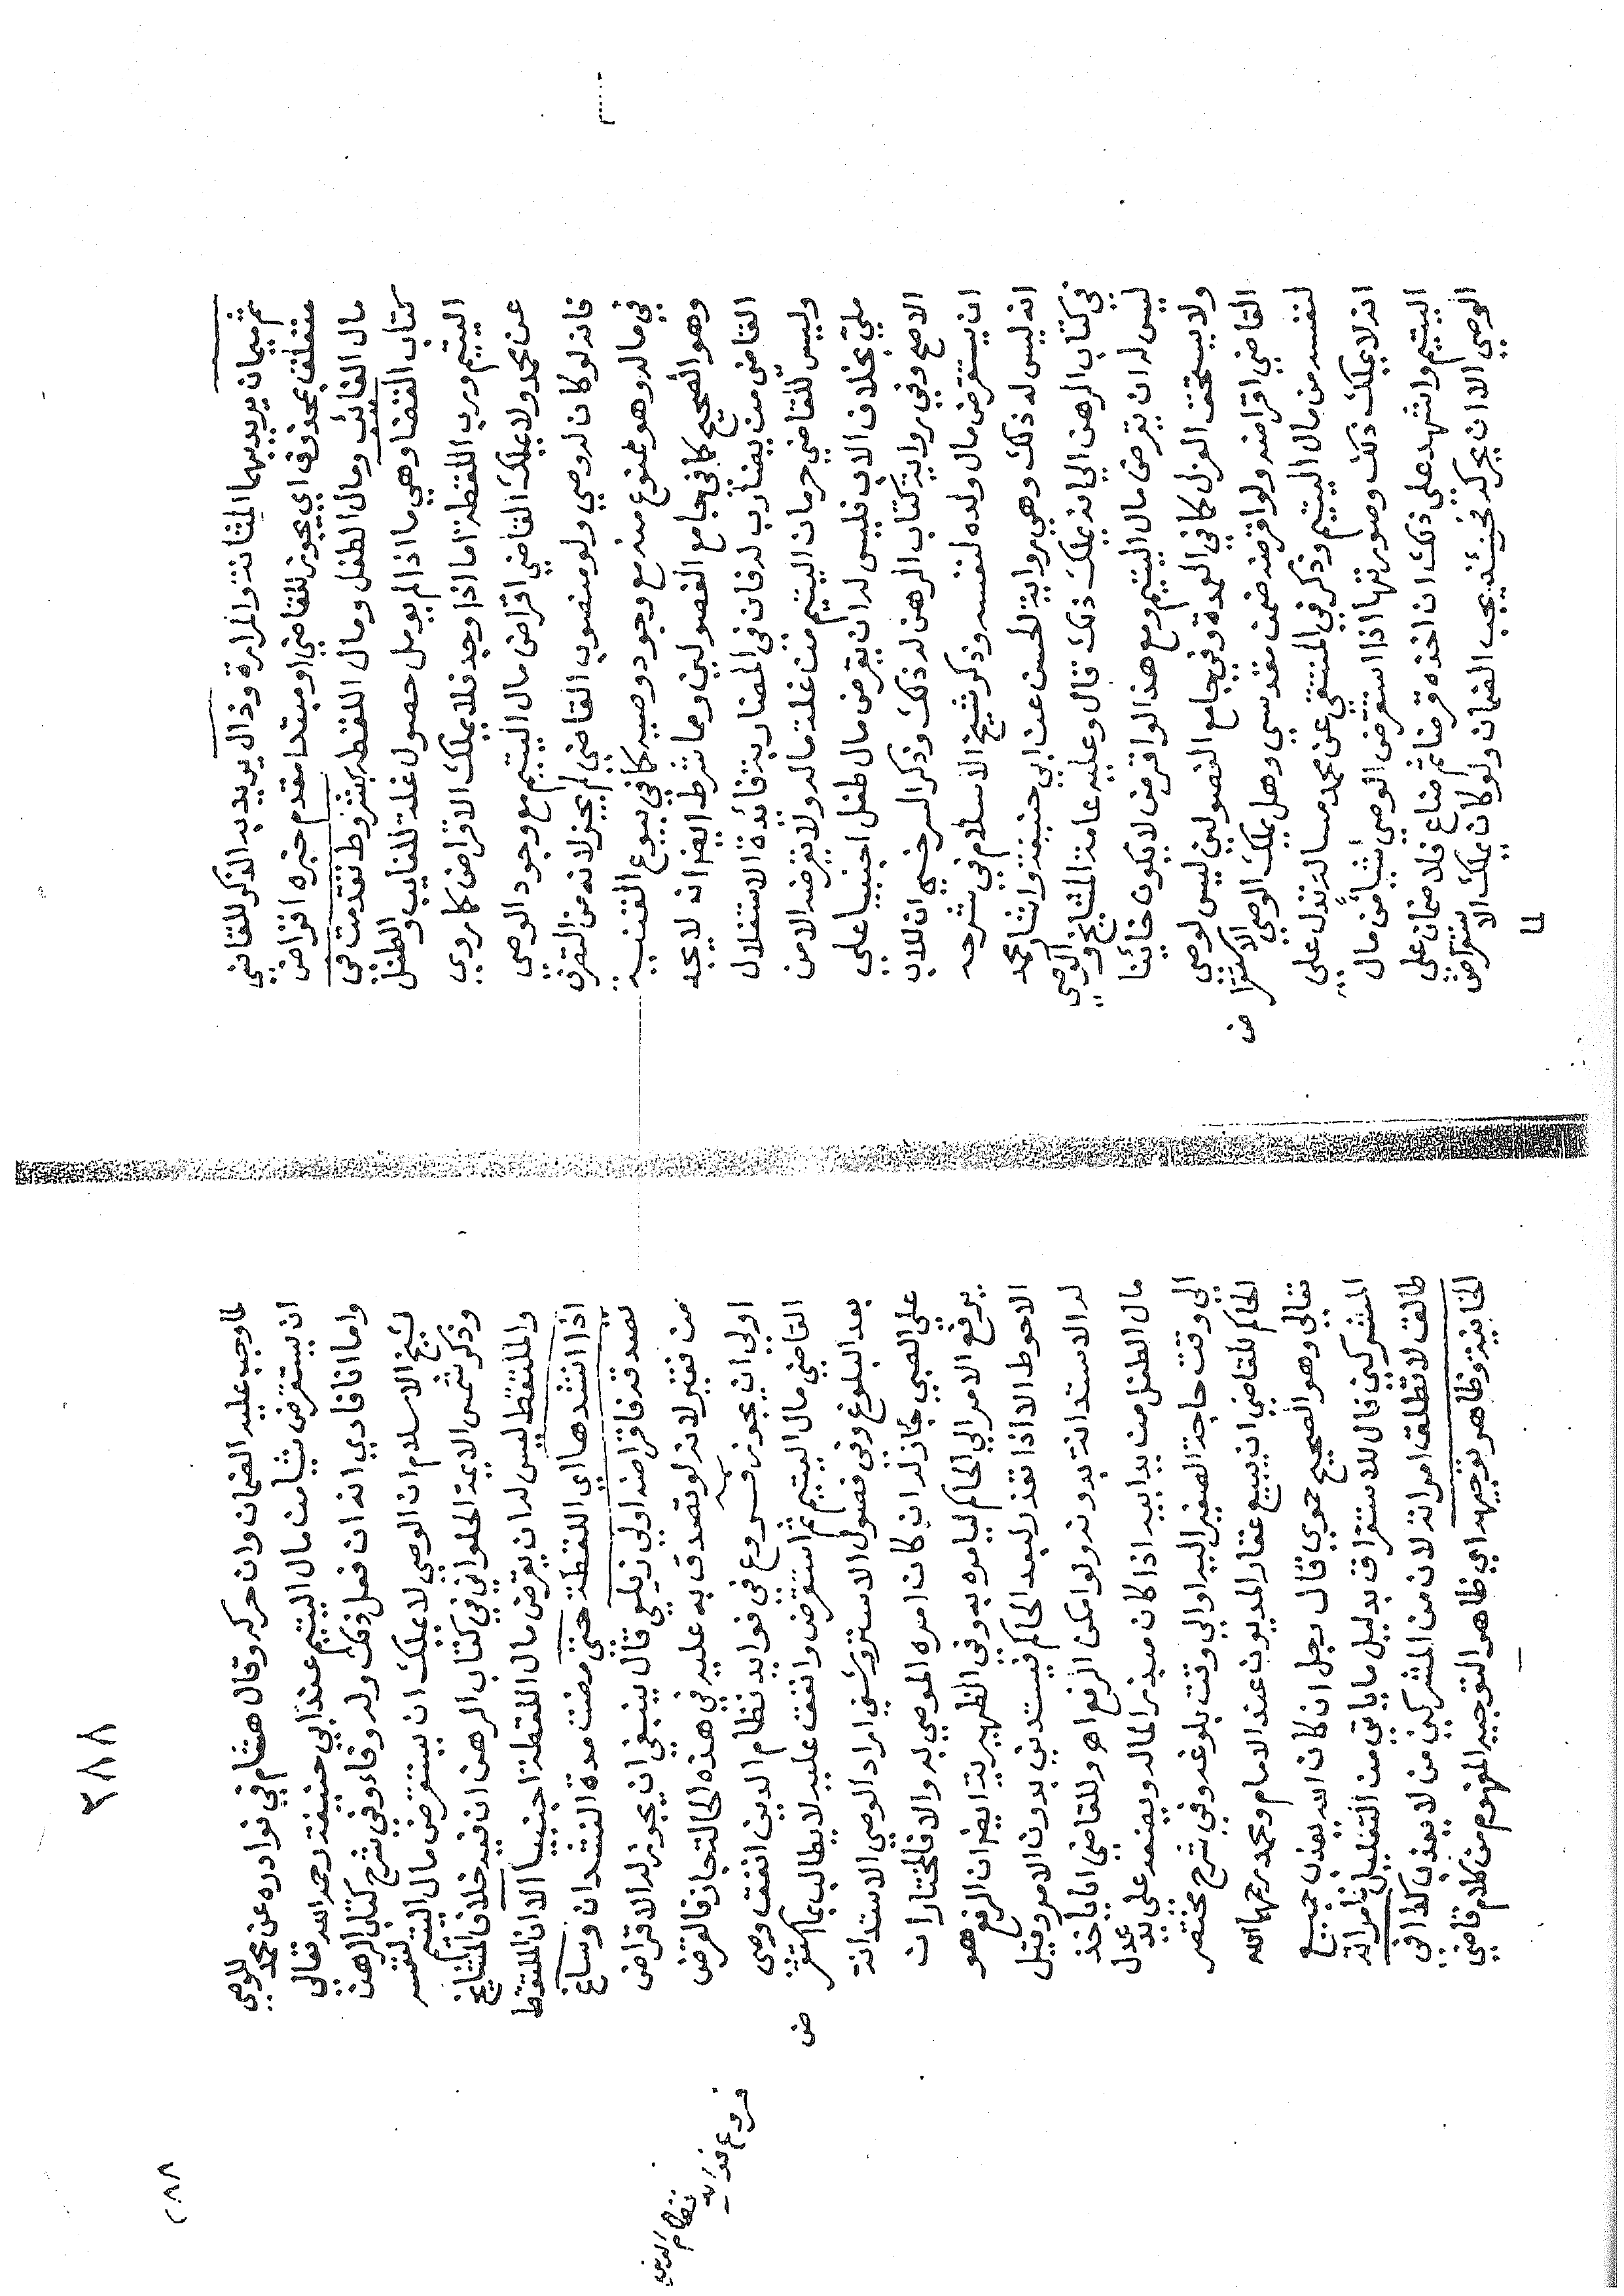 ثم ميمان يريد بهما المثانة والمرارة وذال يريد به الذكر للقاضي
متعلق بمحذوف اي يجوز للقاضي او مبتدا مقدم خبره اقراض
مال الغائب ومال الطفل ومال اللقطه بشروط تقدمت في
كتاب القضا وهي ما اذا لم يومل حصول غلة للغايب والطفل
اليتيم ورب اللقطة اما اذا وجد فلا يملك الاقراض كما روي
عن محمد ولا يملك القاضي اقراض مال اليتيم مع وجود الوصي
فانه لو كان له وصي ولو منصوب القاضي لم يجز لانه من التصرف
في ماله وهو ممنوع منه مع وجود وصيه كما في بيوع القنيه
وهو الصحيح كما في جامع الفصولين ومما شرط ايضا انه لا يجد
القاضي من يضارب له فان في المضاربة فائدة الاستغلال
وليس للقاضي حرمان اليتيم من غلة ماله ولا يقرضه الا من
ملئ بخلاف الاب فليس له ان يقرض مال طفل اجنبيا على
الاصح وفي رواية كتاب الرهن له ذلك وذكر السرخسي ان للاب
ان يستقرض مال ولده لنفسه وذكر شيخ الاسلام في شرحه
انه ليس له ذلك وهي رواية الحسن عن ابي حنيفة واشار محمد
في كتاب الرهن الي انه يملك ذلك قال وعليه عامة المشايخ والوصي
ليس له ان يقرض مال اليتيم ومع هذا لو اقرض لا يكون خائنا
ولا يستحق العزل كما في العمدة وفي جامع الفصولين ليس لوصي
القاضي اقراضه ولو اقرضه ضمن مقدسي وهل يملك الوصي الاستقراض
لنفسه من مال اليتيم وذكر في المنتقى عن محمد مسالة تدل على
انه لا يملك ذلك وصورتها اذا استقرض الوصي شيأ من مال
اليتيم واشهد على ذلك ان اخذه قرضا ثم ضاع فلا ضمان على
الوصي الا ان يحركه فحينئذ يجب الضمان ولو كان يملك الاستقراض
لما
٢٨٨
٢٨٨
لما وجب عليه الضمان وان حركه وقال هشام في نوادره عن محمد للوصي
ان يستقرض شيا من مال اليتيم عند ابي حنيفة رحمه الله تعالى
واما انا فاري انه ان فعل ذلك وله وفاء وفي شرح كتاب الرهن
لشيخ الاسلام ان الوصي لا يملك ان يستقرض مال اليتيم لنفسه
وذكر شمس الايمة الحلواني في كتاب الرهن ان فيه خلاف المشايخ
والملتقط ليس له ان يقرض مال اللقطة اجنبيا الا ان الملتقط
اذا انشدها اي اللقطة حتى مضت مدة النشدان وساغ
تصدقه فاقراضه اولى زيلعي قال ينبغي ان يجوز له الاقراض
من فقير لانه لو تصدق به عليه في هذه الحالة جاز فالقرض
اولى ان يجوز فـــروع في فوايد نظام الدين انفق وصي
القاضي مال اليتيم ثم استقرض وانفق عليه لا يطالب بما استقرض
بعد البلوغ وفي فصول الاستروشني اراد الوصي الاستدانة
على الصبي جاز له ان كان امره الموصي به والا فالمختار ان
يرفع الامر الي الحاكم ليامره به وفي الظهيرية ايضا ان الرفع هو
الاحوط الا اذا تعذر لبعد الحاكم فيستدين بدون الامر وقيل
له الاستدانة بدونه ولو امكن الرفع اهـ وللقاضي ان ياخذ
مال الطفل من يد ابيه اذا كان مبذرا لماله ويضعه على يد عدل
الي وقت حاجة الصغير اليه او الي وقت بلوغه وفي شرح مختصر
الحاكم للقاضي ان يبيع عقار المديون عند الامام ومحمد رحمهما الله
تعالى وهو الصحيح حموي قال رجل ان كان الله يعذب جميع
المشركين قال للاستغراق بدليل ما ياتي من التعليل فامراته
طالق لا تطلق امراته لان من المشركين من لا يعذب كذا في
الخانية وظاهر توجيهه اي ظاهر التوجيه المفهوم من كلام قاضي
فروع فوايد
نظام الدين